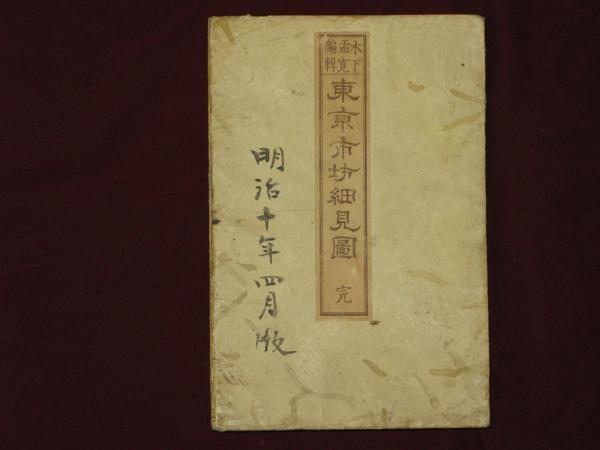 木下
孟寛
編輯
東亰市坊細見圖
完
明治十年四月版